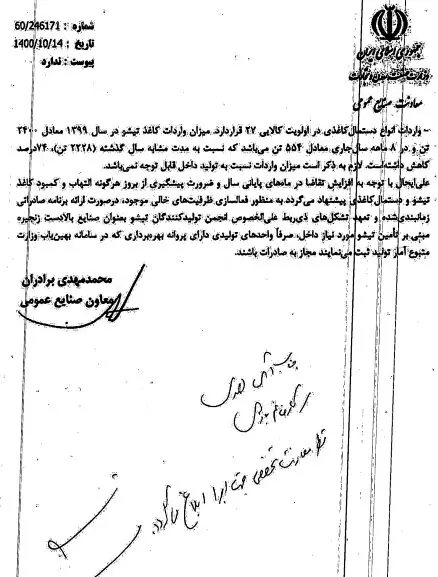 شماره : 60/246171
تاریخ : 1400/10/14
پیوست : ندارد
جمهوری اسلامی ایران
وزارت صنعت، معدن و تجارت
معاونت صنایع عمومی
- واردات انواع دستمال‌کاغذی در اولویت کالایی ۲۷ قراردارد. میزان واردات کاغذ تیشو در سال ۱۳۹۹ معادل ۳۴۰۰
تن و در ۸ ماهه سال‌جاری معادل ۵۵۴ تن می‌باشد که نسبت به مدت مشابه سال گذشته (۲۲۲۸ تن)، ۷۴درصد
کاهش داشته‌است. لازم به ذکر است میزان واردات نسبت به تولید داخل قابل توجه نمی‌باشد.
علی‌ایحال با توجه به افزایش تقاضا در ماه‌های پایانی سال و ضرورت پیشگیری از بروز هرگونه التهاب و کمبود کاغذ
تیشو و دستمال‌کاغذی پیشنهاد می‌گردد به منظور فعالسازی ظرفیت‌های خالی موجود، درصورت ارائه برنامه صادراتی
زمانبندی‌شده و تعهد تشکل‌های ذی‌ربط علی‌الخصوص انجمن تولیدکنندگان تیشو بعنوان صنایع بالادست زنجیره
مبنی بر تأمین تیشو مورد نیاز داخل، صرفاً واحدهای تولیدی دارای پروانه بهره‌برداری که در سامانه بهین‌یاب وزارت
متبوع آمار تولید ثبت می‌نمایند مجاز به صادرات باشند.
محمدمهدی برادران
معاون صنایع عمومی
جناب آقای
نظر معاونت تخصصی جهت اجرا ابلاغ می‌گردد